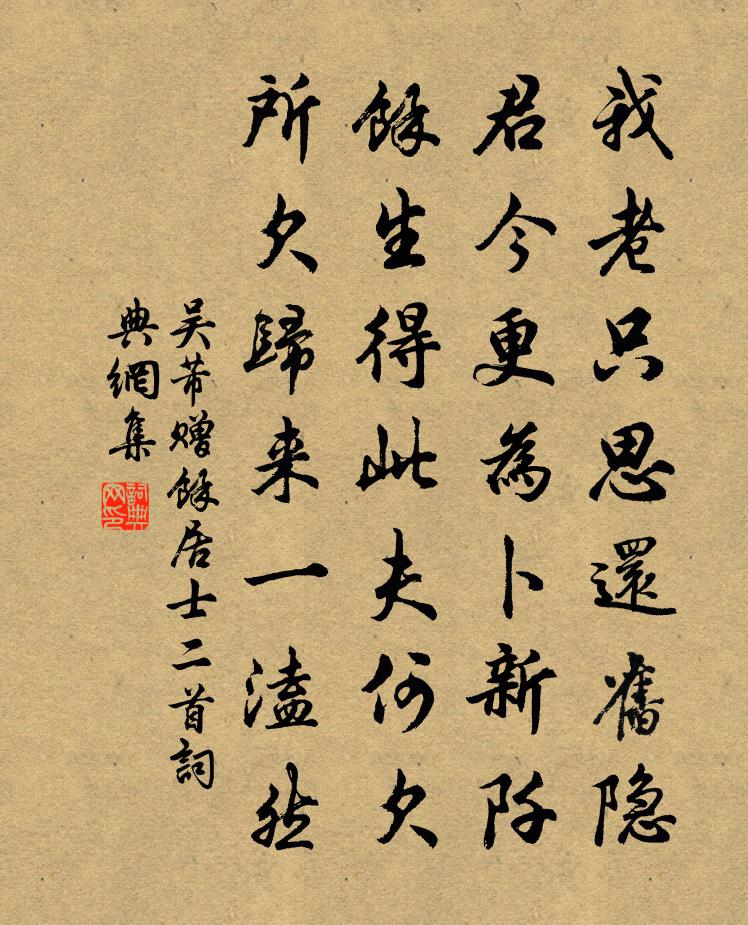 我老只思還舊隐
君今更為卜新阡
餘生得此夫何欠
所欠歸来一溘然
吴芾赠餘居士二首詞
典網集
詞典
网印